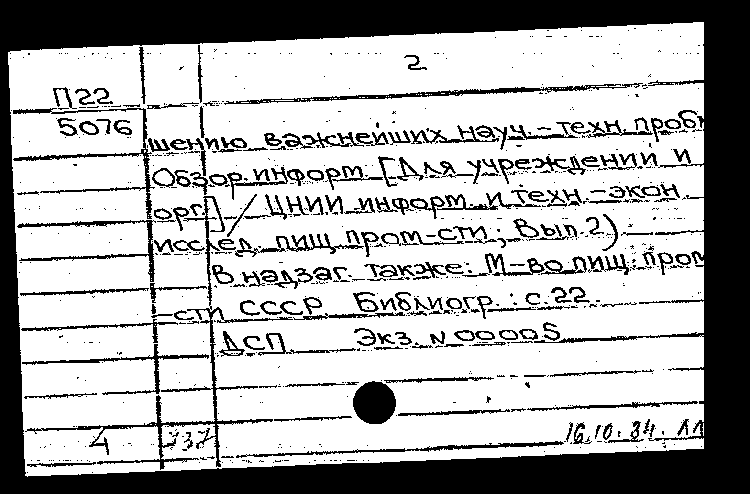 2
П22
5076
шению важнейших науч.-техн. пробл
Обзор. информ. [Для учреждений и
орг.] / ЦНИИ информ. и техн.-экон.
исслед. пищ. пром-сти; Вып. 2)
В надзаг. также: М-во пищ. пром
-сти СССР. Библиогр.: с. 22.
ДСП. Экз. N 00005
4 737 16.10.84. ЛЛ